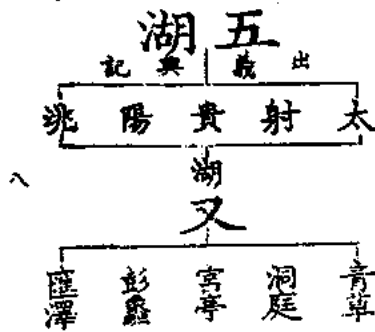 五湖
出義興記
太射貴陽洮
湖
又
青草
洞庭
宮亭
彭蠡
匯澤
八